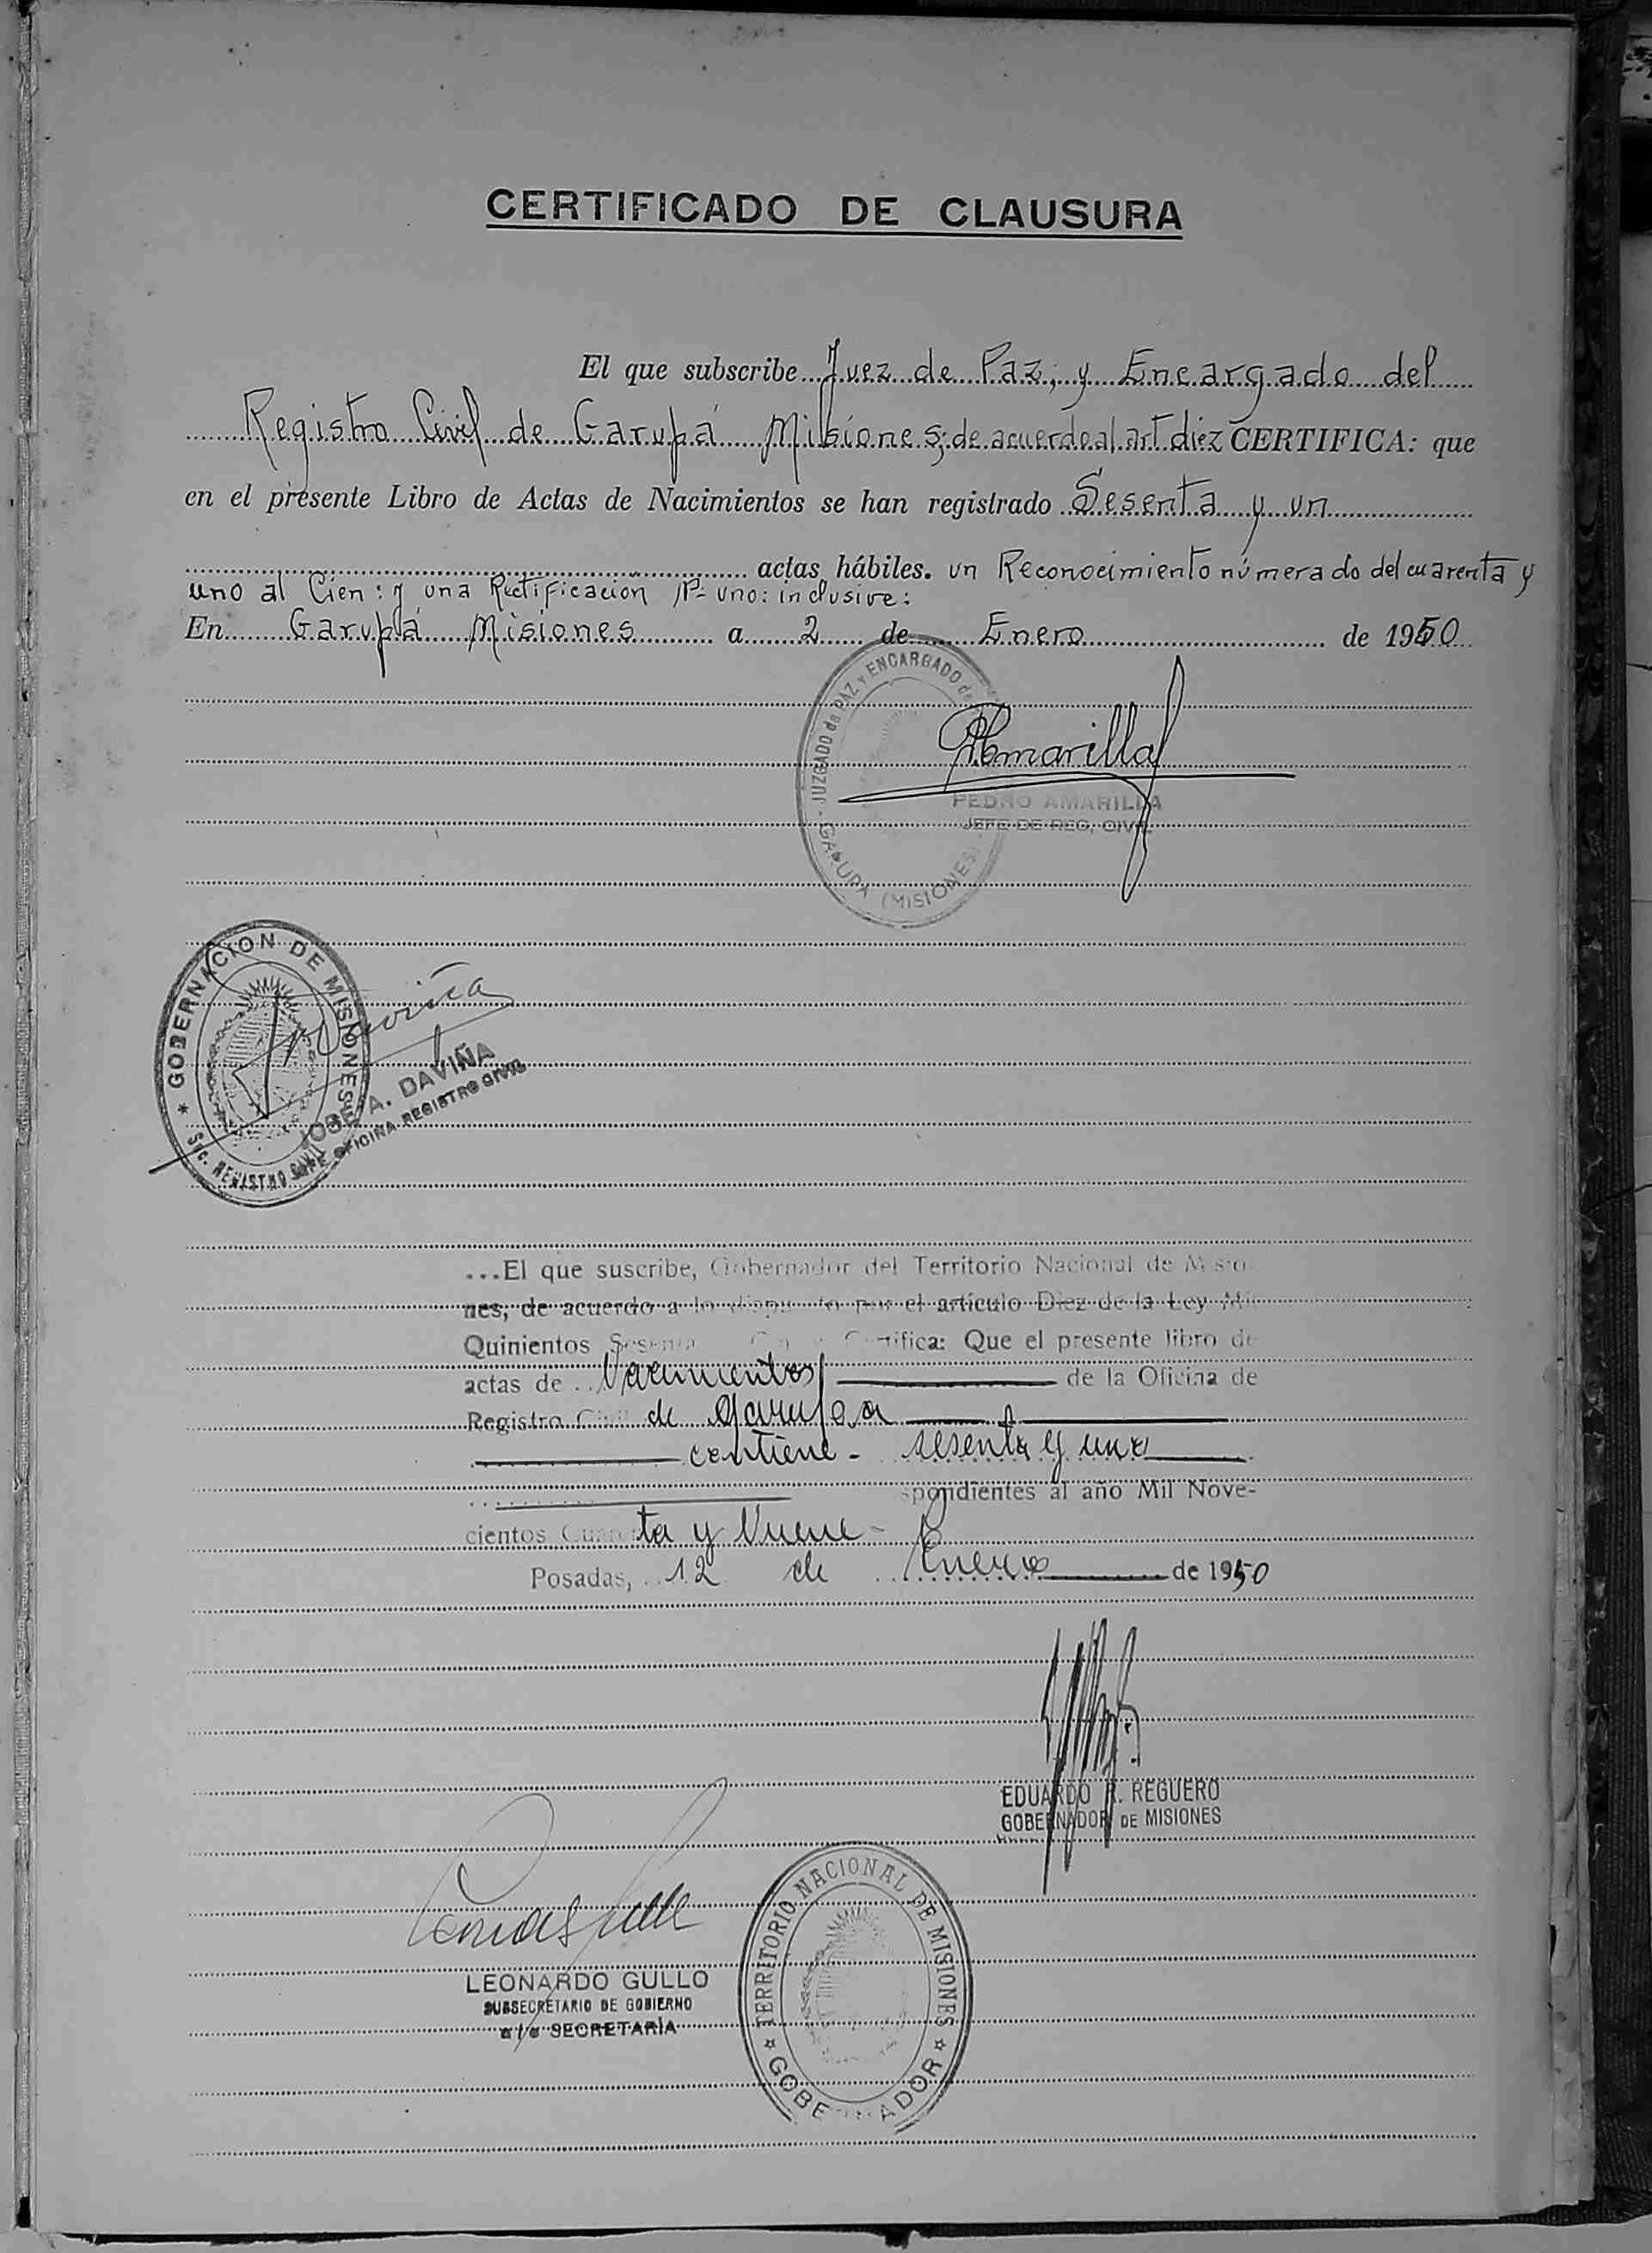 CERTIFICADO DE CLAUSURA
El que subscribe Juez de Paz, y Encargado del
Registro Civil de Garupá Misiones; de acuerdo al art diez CERTIFICA: que
en el presente Libro de Actas de Nacimientos se han registrado Sesenta y un
actas hábiles. un Reconocimiento númerado del cuarenta y
uno al Cien: y una Rectificacion Nº uno: inclusive:
En Garupá Misiones a 2 de Enero de 1950
JUZGADO de PAZ Y ENCARGADO de
GARUPA (MISIONES)
PAmarilla
PEDRO AMARILLA
JEFE DE REG. CIVIL
GOBERNACION DE MISIONES
Sec. REGISTRO CIVIL
JOSE A. DAVIÑA
JEFE OFICINA REGISTRO CIVIL
...El que suscribe, Gobernador del Territorio Nacional de Misio
nes, de acuerdo a lo dispuesto por el artículo Diez de la Ley Mil
Quinientos Sesenta Certifica: Que el presente libro de
actas de Nacimientos de la Oficina de
Registro Civil de Garupa
contiene - sesenta y una
spondientes al año Mil Nove-
cientos Cuarenta y Nueve -
Posadas, 12 de Enero de 1950
EDUARDO REGUERO
GOBERNADOR DE MISIONES
LEONARDO GULLO
SUBSECRETARIO DE GOBIERNO
a/c SECRETARÍA
TERRITORIO NACIONAL DE MISIONES
GOBERNADOR